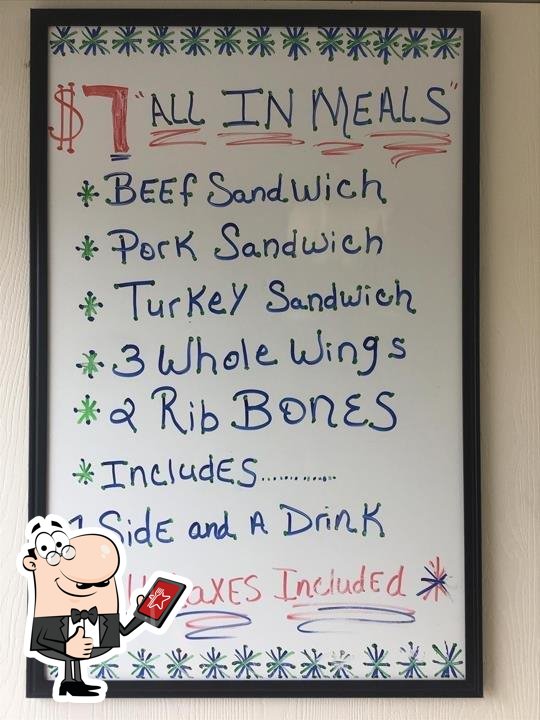 $7 "ALL IN MEALS"
* BEEF Sandwich
* Pork Sandwich
* Turkey Sandwich
* 3 Whole Wings
* 2 Rib BONES
* IncludES............
1 SidE and A DrinK
TaxES IncludEd *